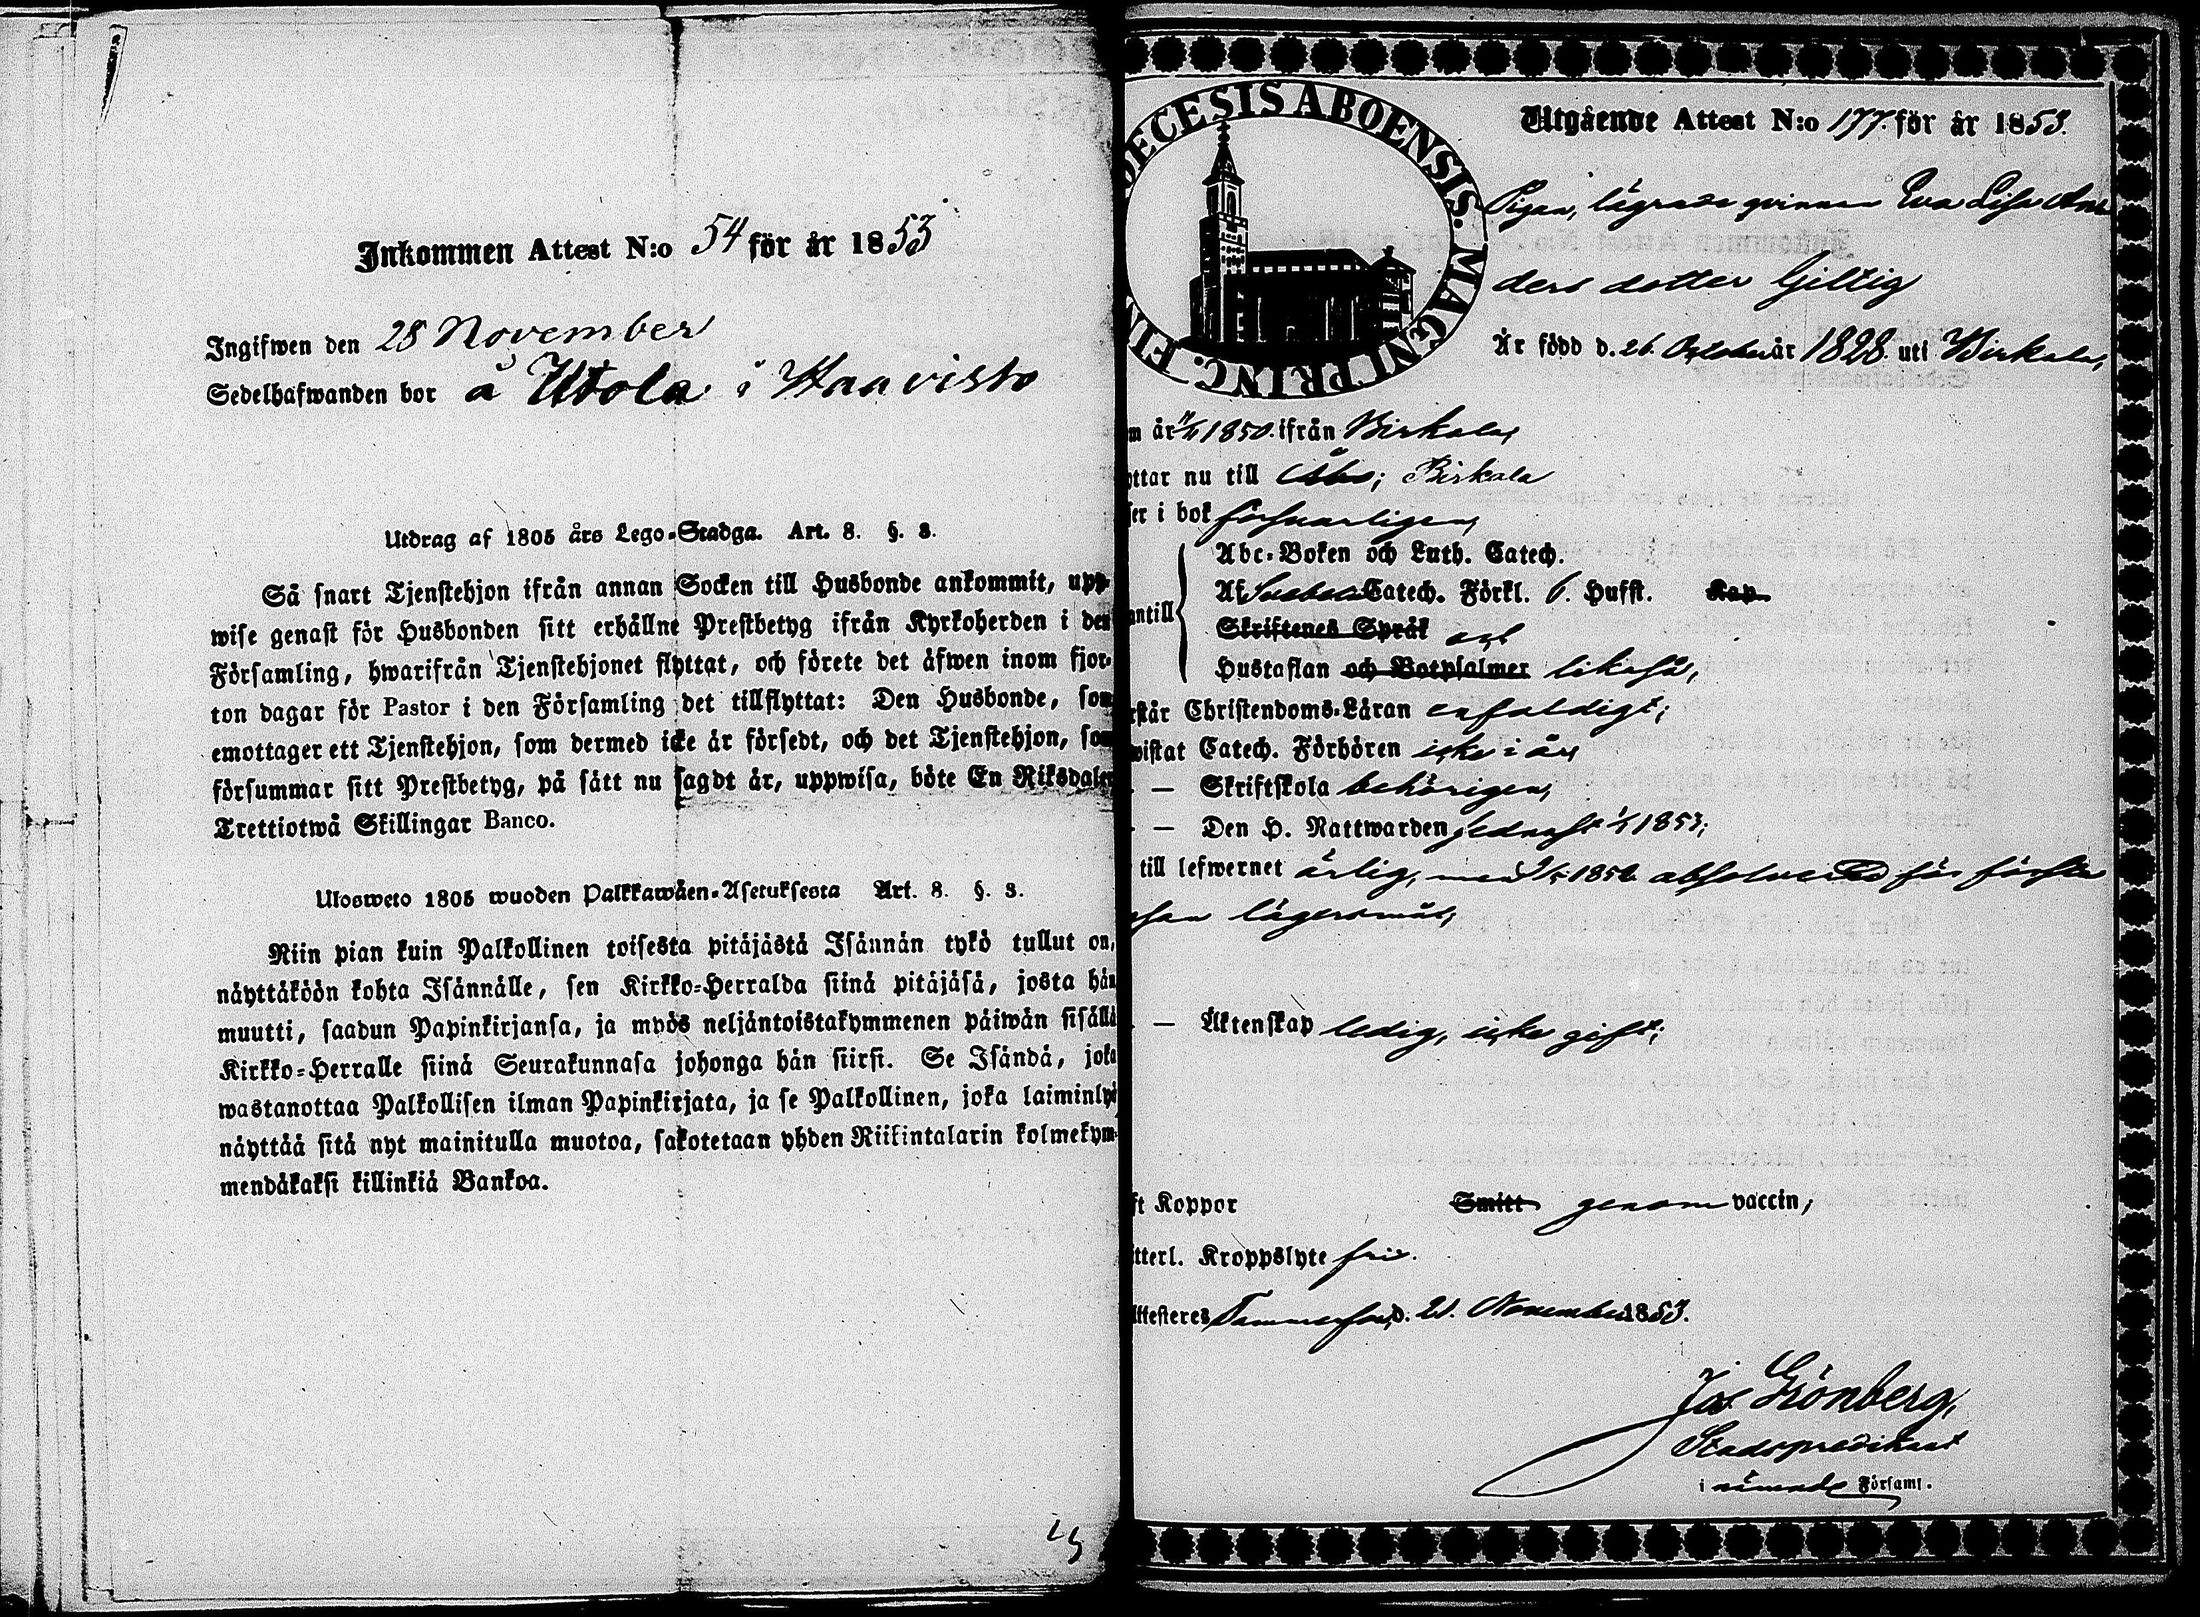 Inkommen Attest N:o 54 för år 1853
Ingifwen den 28 November
Sedelhafwanden bor å Utola i Haavisto
Utdrag af 1805 års Lego-Stadga. Art. 8. §. 3.
Så snart Tjenstehjon ifrån annan Socken till Husbonde ankommit, upp-
wise genast för Husbonden sitt erhållne Prestbetyg ifrån Kyrkoherden i den
Församling, hwarifrån Tjenstehjonet flyttat, och förete det äfwen inom fjor-
ton dagar för Pastor i den Församling det tillflyttat: Den Husbonde, som
emottager ett Tjenstehjon, som dermed icke är försedt, och det Tjenstehjon, som
försummar sitt Prestbetyg, på sätt nu sagdt är, uppwisa, böte En Riksdaler
Trettiotwå Skillingar Banco.
Ulosweto 1805 wuoden Palkkawäen-Asetuksesta Art. 8. §. 3.
Niin pian kuin Palkollinen toisesta pitäjästä Isännän tykö tullut on,
näyttäköön kohta Isännälle, sen Kirkko-Herralda siinä pitäjäsä, josta hän
muutti, saadun Papinkirjansa, ja myös neljäntoistakymmenen päiwän sisällä
Kirkko-Herralle siinä Seurakunnasa johonga hän siirsi. Se Isändä, joka
wastanottaa Palkollisen ilman Papinkirjata, ja se Palkollinen, joka laiminlyö
näyttää sitä nyt mainitulla muotoa, sakotetaan yhden Riikintalarin kolmekym-
mendäkaksi killinkiä Bankoa.
DECESIS ABOENSIS. MAGNI PRINC. FIN
Utgående Attest N:o 177. för år 1853.
Pigan, lägrade qvinnan Eva Lisa An
ders dotter Giltig
Är född d. 26. October år 1828. uti Birkala,
m år 1850. ifrån Birkala,
yttar nu till Åbo; Birkala
ser i bok försvarligen,
Abc-Boken och Luth. Catech.
Af Svebelii Catech. Förkl. 6. Hufst. Kap
antill Skriftenes Språk
Hustaflan och Botpsalmer likaså,
rstår Christendoms-Läran enfaldigt;
wistat Catech. Förhören icke i år,
— Skriftskola behörigen,
— Den H. Nattwarden sednast 1853;
till lefwernet ärlig, men absolverad för första
resan lägersmål;
— Äktenskap ledig, icke gift;
ft Koppor Smitt genom vaccin,
tterl. Kroppslyte fri.
Attesteres Tammerfors, d. 21. November 1853.
Grönberg,
Stadspredikant
i nämnde Församl.